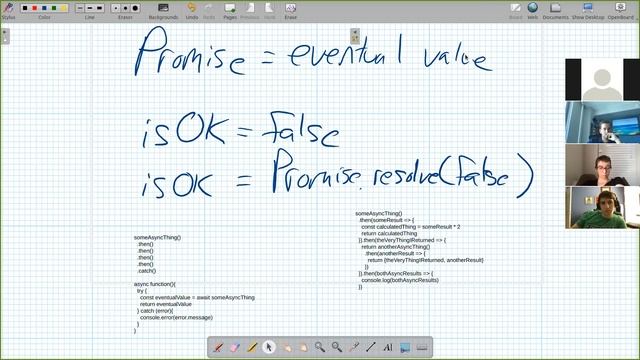 Stylus
Color
Line
Eraser
Backgrounds
Undo
Redo
Pages
Previous
Next
Erase
Board
Web
Documents
Show Desktop
OpenBoard
Promise = eventual value
isOK = false
isOK = Promise.resolve(false)
someAsyncThing()
.then()
.then()
.then()
.then()
.catch()
async function(){
try {
const eventualValue = await someAsyncThing
return eventualValue
} catch (error){
console.error(error.message)
}
}
someAsyncThing()
.then(someResult => {
const calculatedThing = someResult * 2
return calculatedThing
}).then(theVeryThingIReturned => {
return anotherAsyncThing()
.then(anotherResult => {
return {theVeryThingIReturned, anotherResult}
})
}).then(bothAsyncResults => {
console.log(bothAsyncResults)
})